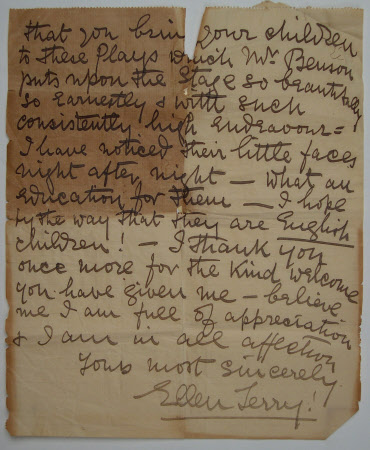 that you bring your children
to these Plays which Mr. Benson
puts upon the Stage so beautifully
so earnestly & with such
consistently high endeavour =
I have noticed their little faces
night after night — what an
education for them — I hope
by the way that they are English
children! — I thank you
once more for the kind welcome
you have given me — believe
me I am full of appreciation
& I am in all affection
Yours most sincerely
Ellen Terry!